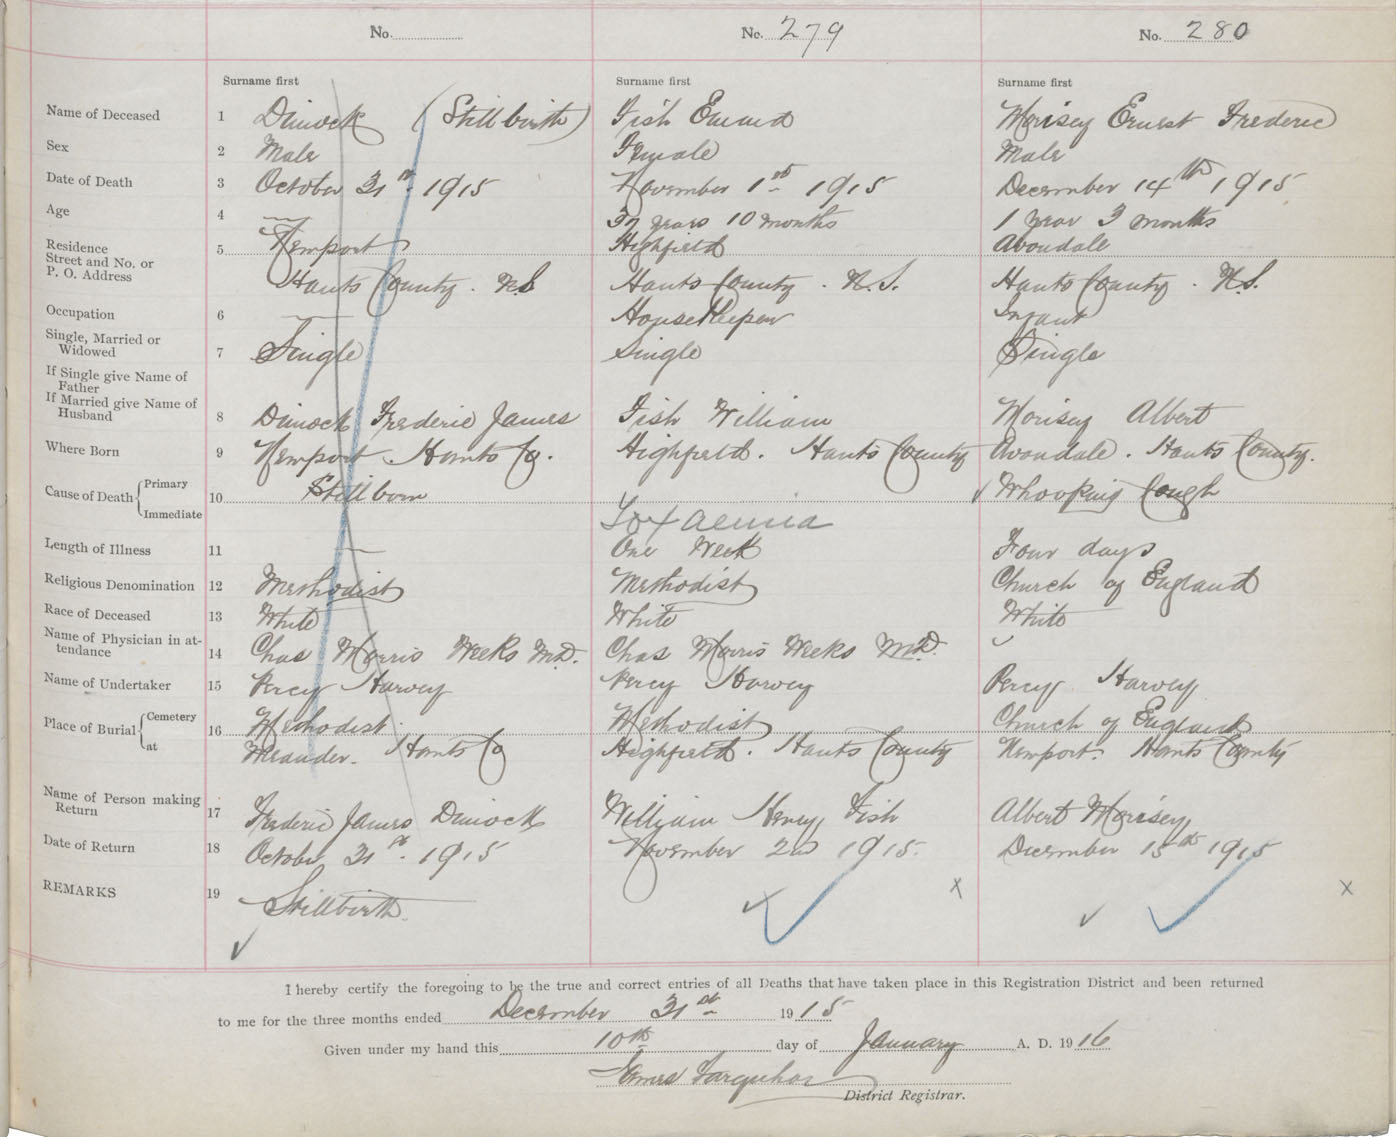 No. No. 279 No. 280
Surname first Surname first Surname first
Name of Deceased 1 Dimock (Stillbirth) Fish Emma Morisey Ernest Frederic
Sex 2 Male Female Male
Date of Death 3 October 31st 1915 November 1st 1915 December 14th 1915
Age 4 — 37 years 10 months 1 year 3 months
Residence 5 Newport Highfield Avondale
Street and No. or
P. O. Address Hants County. N.S Hants County. N.S. Hants County. N.S.
Occupation 6 — HouseKeeper Infant
Single, Married or
Widowed 7 Single Single Single
If Single give Name of
Father
If Married give Name of
Husband 8 Dimock Frederic James Fish William Morisey Albert
Where Born 9 Newport. Hants Co. Highfield. Hants County Avondale. Hants County.
Cause of Death { Primary 10 Stillborn Whooping Cough
Immediate Toxaemia
Length of Illness 11 — One Week Four days
Religious Denomination 12 Methodist Methodist Church of England
Race of Deceased 13 White White White
Name of Physician in at-
tendance 14 Chas Morris Weeks M.D. Chas Morris Weeks M.D.
Name of Undertaker 15 Percy Harvey Percy Harvey Percy Harvey
Place of Burial { Cemetery 16 Methodist Methodist Church of England
at Meander. Hants Co Highfield. Hants County Newport. Hants County
Name of Person making
Return 17 Frederic James Dimock William Henry Fish Albert Morisey
Date of Return 18 October 31st. 1915 November 2nd 1915. December 15th 1915
REMARKS 19 Stillbirth.
I hereby certify the foregoing to be the true and correct entries of all Deaths that have taken place in this Registration District and been returned
to me for the three months ended December 31st 1915
Given under my hand this 10th day of January A. D. 1916
James Farquhar
District Registrar.